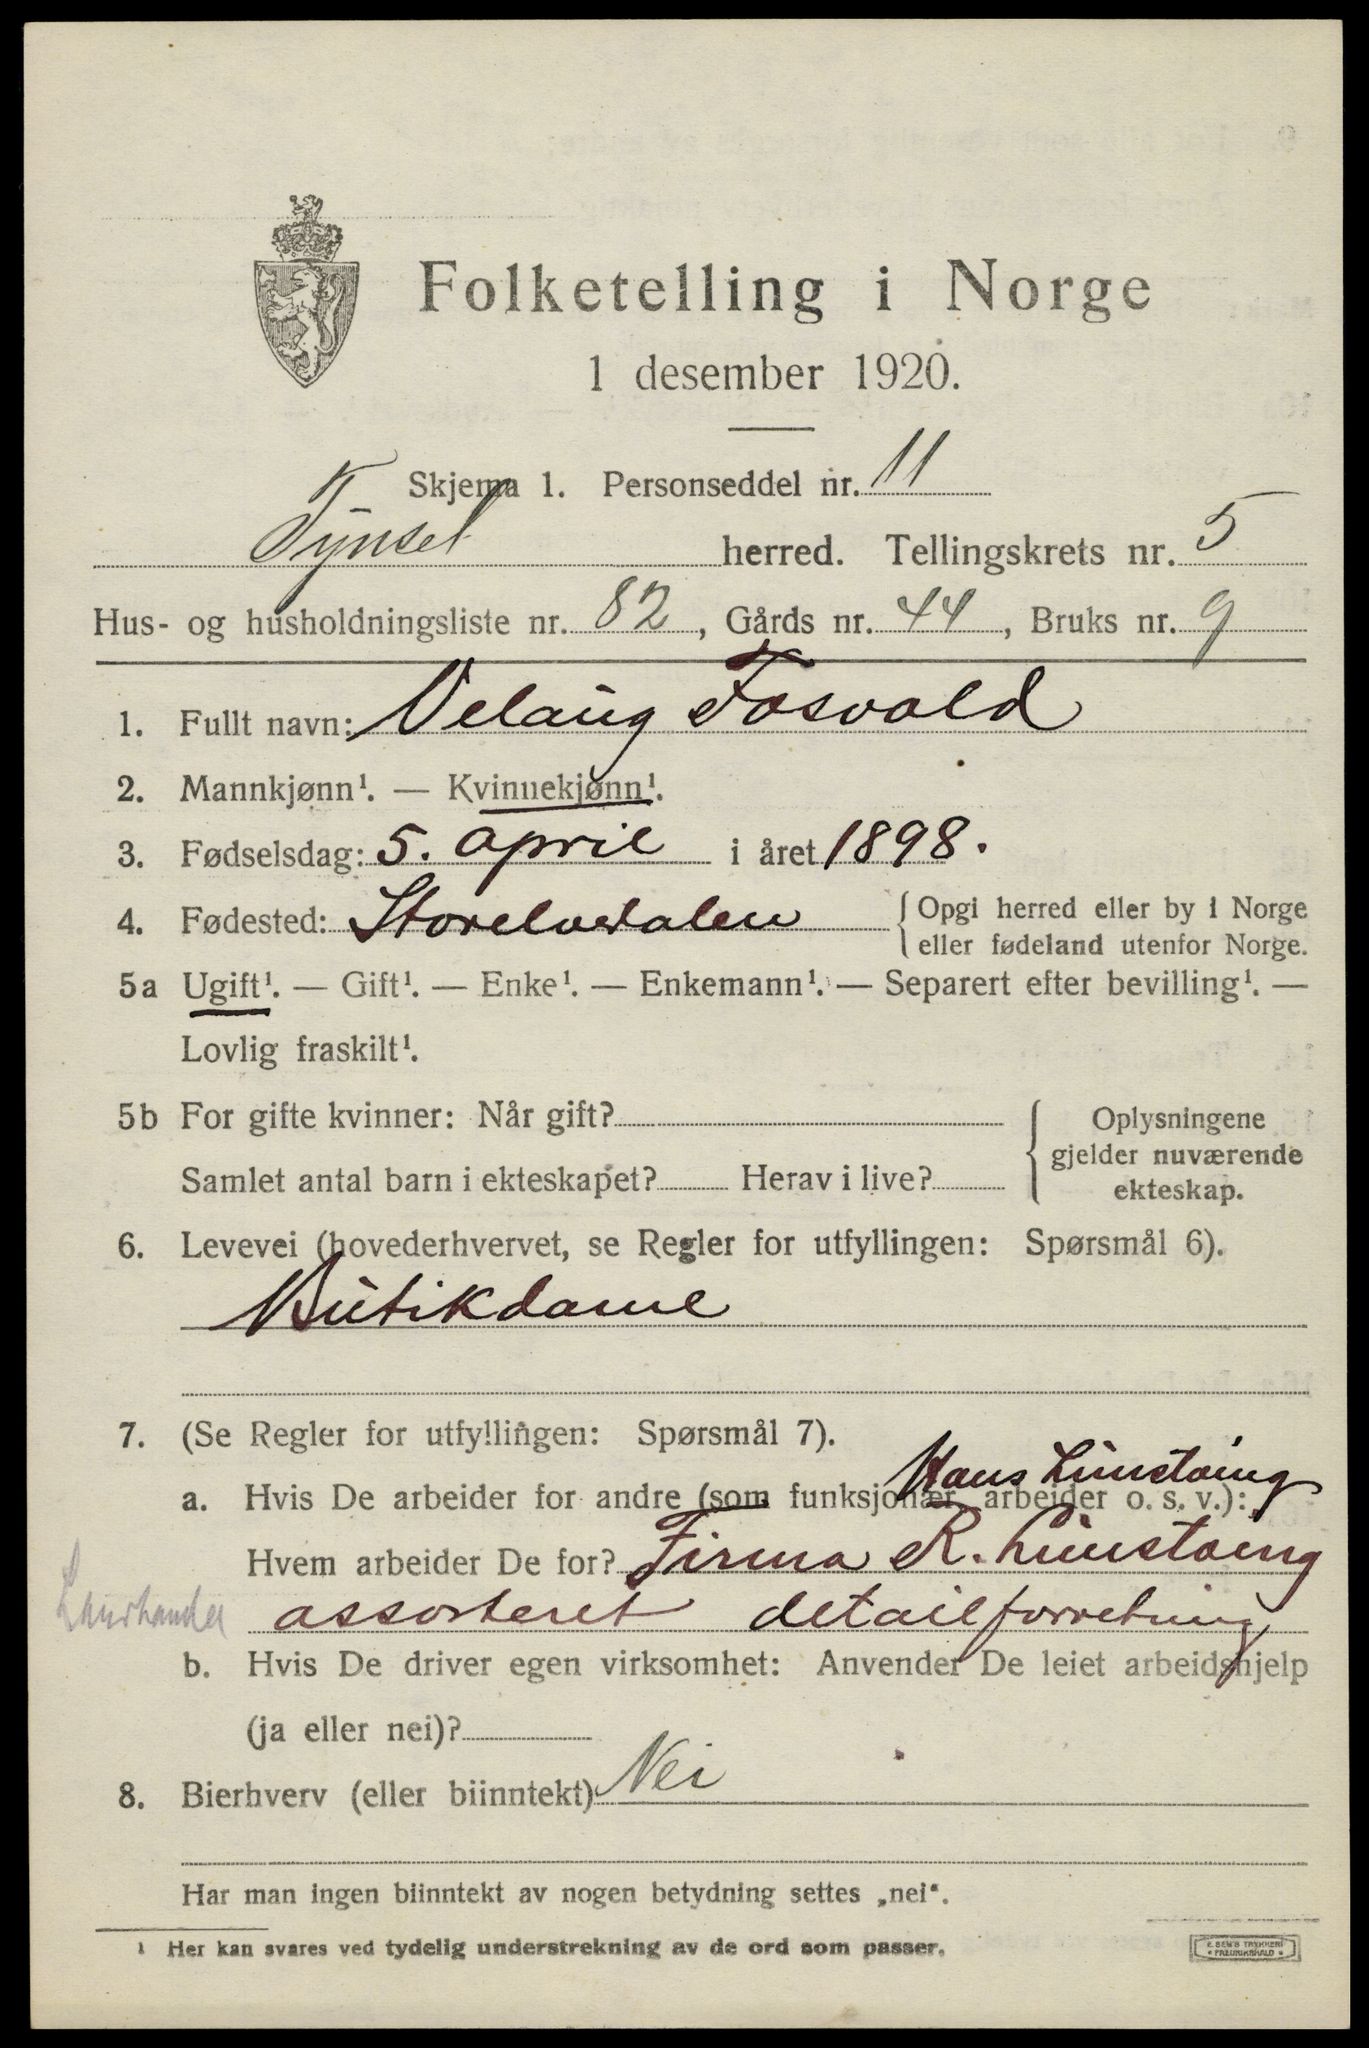 Folketelling i Norge
1 desember 1920.
Skjema 1. Personseddel nr. 11
Tynset herred. Tellingskrets nr. 5
Hus- og husholdningsliste nr. 82, Gårds nr. 44, Bruks nr. 9
1. Fullt navn: Velaug Fosvold
2. Mannkjønn¹. — Kvinnekjønn¹.
3. Fødselsdag: 5. april i året 1898.
4. Fødested: Storelvedalen { Opgi herred eller by i Norge
eller fødeland utenfor Norge.
5a Ugift¹. — Gift¹. — Enke¹. — Enkemann¹. — Separert efter bevilling¹. —
Lovlig fraskilt¹.
5b For gifte kvinner: Når gift? { Oplysningene
gjelder nuværende
Samlet antal barn i ekteskapet? Herav i live? ekteskap.
6. Levevei (hovederhvervet, se Regler for utfyllingen: Spørsmål 6).
Butikdame
7. (Se Regler for utfyllingen: Spørsmål 7).
Hans
a. Hvis De arbeider for andre (som funksjonær, arbeider o. s. v.):
Hvem arbeider De for? Firma R.
Landhandel assorteret detailforretning
b. Hvis De driver egen virksomhet: Anvender De leiet arbeidshjelp
(ja eller nei)?
8. Bierhverv (eller biinntekt) Nei
Har man ingen biinntekt av nogen betydning settes „nei“.
¹ Her kan svares ved tydelig understrekning av de ord som passer.
E. SEM'S TRYKKERI
• FREDRIKSHALD •